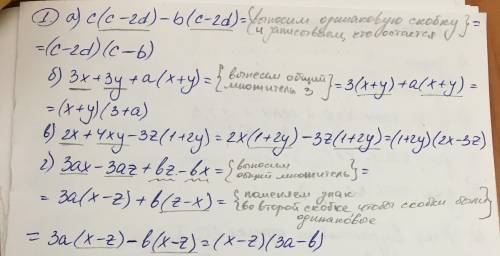 ① а) c(c-2d)-b(c-2d)={выносим одинаковую скобку и записываем, что остается}=
=(c-2d)(c-b)
б) 3x+3y+a(x+y)={вынесем общий множитель 3}=3(x+y)+a(x+y)=
=(x+y)(3+a)
в) 2x+4xy-3z(1+2y)=2x(1+2y)-3z(1+2y)=(1+2y)(2x-3z)
г) 3ax-3az+bz-bx={выносим общий множитель}=
=3a(x-z)+b(z-x)={поменяем знак во второй скобке, чтобы скобки были одинаковые}
=3a(x-z)-b(x-z)=(x-z)(3a-b)